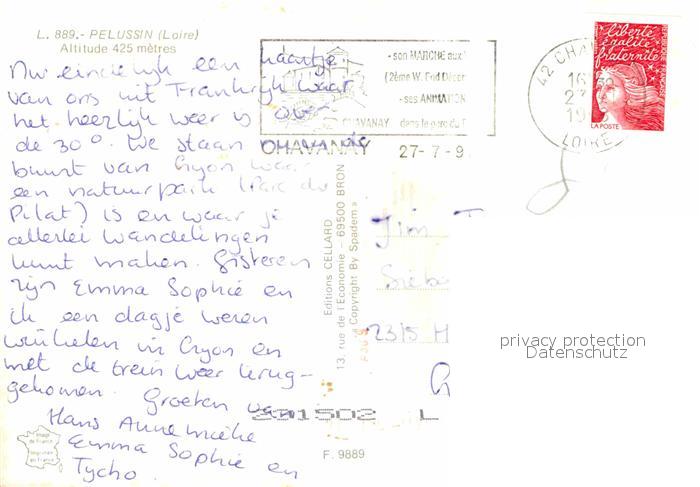 L. 889.- PELUSSIN (Loire)
Altitude 425 mètres
Nu eindelijk een kaartje
van ons uit Frankrijk waar
het heerlijk weer is over
de 30°. We staan
buurt van Lyon waar
een natuurpark (Parc du
Pilat) is en waar je
allerlei wandelingen
kunt maken. Gisteren
zijn Emma Sophie en
ik een dagje weren
winkelen in Lyon en
met de trein weer terug-
gekomen. Groeten van
Hans Annemieke
Emma Sophie en
Tycho.
- son MARCHE aux
(2ème W. End Décem
- ses ANIMATION
CHAVANAY dans le parc du
CHAVANAY 27-7-9
42 CHA
16
27
19
LOIRE
liberté
égalité
fraternité
LA POSTE
Editions CELLARD
13, rue de l'Economie - 69500 BRON
« Copyright By Spadem »
Jim T
2315 H
privacy protection
Datenschutz
201502 L
Image
de France
Imprimé
en France
F. 9889